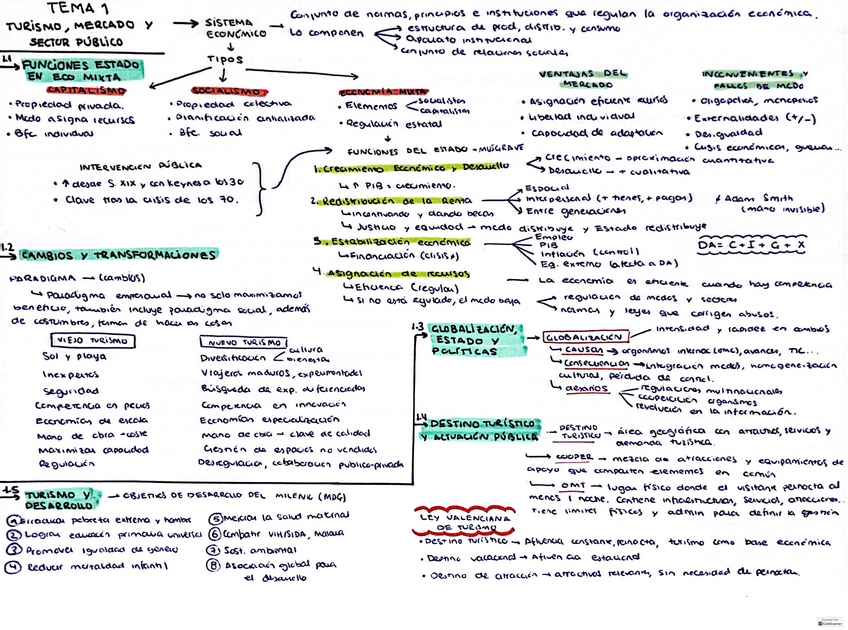 TEMA 1
TURISMO, MERCADO Y
SECTOR PÚBLICO
→ SISTEMA
ECONÓMICO
Conjunto de normas, principios e instituciones que regulan la organización económica.
Lo componen
estructura de prod, distrib. y consumo
aparato institucional
conjunto de relaciones sociales
TIPOS
1.1 FUNCIONES ESTADO
EN ECO MIXTA
CAPITALISMO
• Propiedad privada.
• Mcdo asigna recursos
• Bfc individual
SOCIALISMO
• Propiedad colectiva
• Planificación centralizada
• Bfc social
ECONOMÍA MIXTA
• Elementos
socialistas
capitalistas
• Regulación estatal
VENTAJAS DEL
MERCADO
• Asignación eficiente
• Libertad individual
• Capacidad de adaptación
INCONVENIENTES y
FALLOS DE MCDO
• Oligopolios, monopolios
• Externalidades (+/-)
• Desigualdad
• Crisis económicas, guerras...
INTERVENCIÓN PÚBLICA
• ↑ desde S. XIX y con Keynes a los 30
• Clave tras la crisis de los 70.
FUNCIONES DEL ESTADO - MUSGRAVE
1. Crecimiento Económico y Desarrollo
→ Crecimiento - aproximación cuantitativa
→ Desarrollo - + cualitativa
↳ ↑ PIB = crecimiento.
2. Redistribución de la Renta
→ Espacial
→ Interpersonal (+ tienes, + pagas)
→ Entre generaciones
≠ Adam Smith
(mano invisible)
↳ Incentivando y dando becas
↳ Justicia y equidad → mcdo distribuye y Estado redistribuye
3. Estabilización económica
Empleo
PIB
Inflación (control)
Eq. externo (afecta a DA)
DA = C + I + G + X
↳ Financiación (crisis)
4. Asignación de recursos
— La economía es eficiente cuando hay competencia
↳ Eficiencia (regular)
↳ Si no está regulado, el mcdo baja
regulación de mcdos y sectores
normas y leyes que corrigen abusos.
1.2 CAMBIOS Y TRANSFORMACIONES
PARADIGMA → (cambios)
↳ Paradigma empresarial → no solo maximizamos
beneficio, también incluye paradigma social, además
de costumbres, formas de hacer las cosas
VIEJO TURISMO
Sol y playa
Inexpertos
Seguridad
Competencia en precios
Economías de escala
Mano de obra - coste
Maximizar capacidad
Regulación
NUEVO TURISMO
Diversificación
cultura
bienestar
Viajeros maduros, experimentados
Búsqueda de exp. diferenciadas
Competencia en innovación
Economías especialización
Mano de obra - clave de calidad
Gestión de espacios no vendidos
Desregulación, colaboración publico-privada
1.3 GLOBALIZACIÓN,
ESTADO Y
POLÍTICAS
→ GLOBALIZACIÓN
intensidad y rapidez en cambios
↳ CAUSAS → organismos internac (OMC), avances, TIC...
↳ Consecuencias → integración mcdos, homogeneización
cultural, pérdida de control.
↳ desafíos
regulaciones multinacionales
cooperación organismos
revolución en la información.
1.4 DESTINO TURÍSTICO
Y ACTUACIÓN PÚBLICA
— DESTINO
TURÍSTICO → área geográfica con atractivos, servicios y
demanda turística.
↳ COOPER → mezcla de atracciones y equipamientos de
apoyo que comparten elementos en común
↳ OMT → lugar físico donde el visitante pernocta al
menos 1 noche. Contiene infraestructuras, servicios, atracciones...
Tiene límites físicos y admin para definir la gestión
LEY VALENCIANA
DE TURISMO
• Destino turístico → Afluencia constante, pernocta, turismo como base económica
• Destino vacacional → Afluencia estacional
• Destino de atracción → atractivos relevantes, sin necesidad de pernoctar.
1.5 TURISMO Y
DESARROLLO
→ OBJETIVOS DE DESARROLLO DEL MILENIO (MDG)
① Erradicar pobreza extrema y hambre
② Lograr educación primaria universal
③ Promover igualdad de género
④ Reducir mortalidad infantil
⑤ Mejorar la salud maternal
⑥ Combatir VIH/SIDA, malaria
⑦ Sost. ambiental
⑧ Asociación global para
el desarrollo
CamScanner